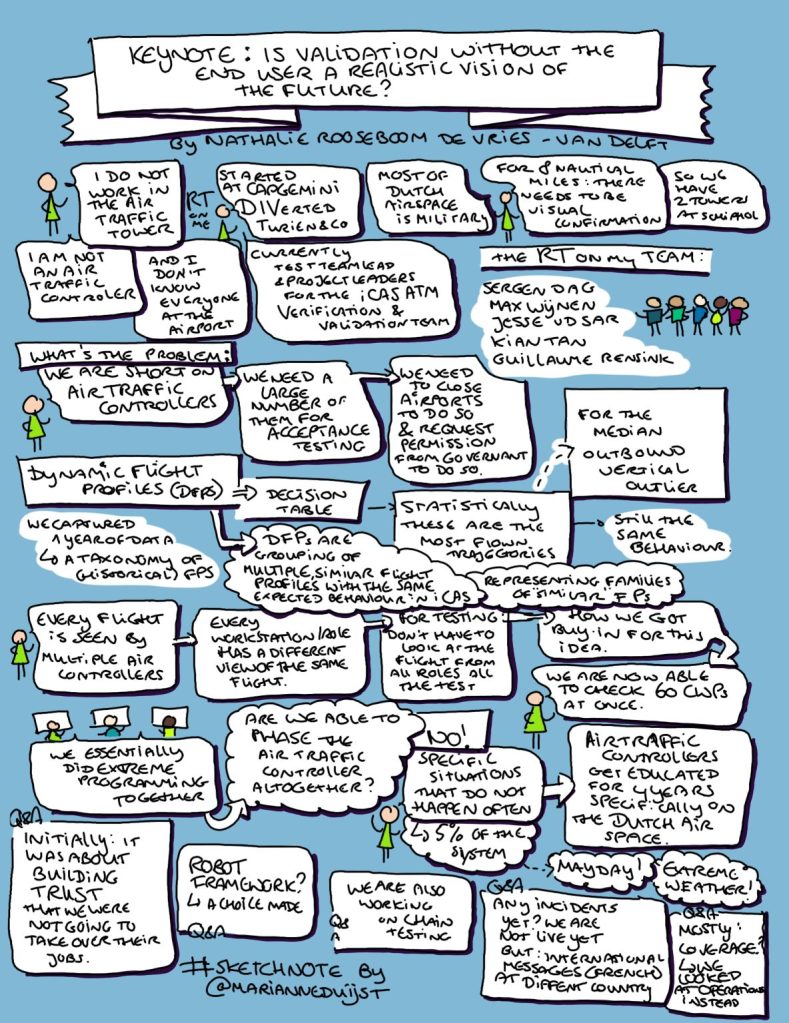 KEYNOTE: IS VALIDATION WITHOUT THE
END USER A REALISTIC VISION OF
THE FUTURE?
BY NATHALIE ROOSEBOOM DE VRIES - VAN DELFT
I DO NOT
WORK IN
THE AIR
TRAFFIC
TOWER
I AM NOT
AN AIR
TRAFFIC
CONTROLER
AND I
DON'T
KNOW
EVERYONE
AT THE
AIRPORT
RT
ON
ME
STARTED
AT CAPGEMINI
DIVERTED
TURIEN & CO
MOST OF
DUTCH
AIRSPACE
IS MILITARY
CURRENTLY
TEST TEAM LEAD
& PROJECT LEADERS
FOR THE iCAS ATM
VERIFICATION &
VALIDATION TEAM
FOR 8 NAUTICAL
MILES: THERE
NEEDS TO BE
VISUAL
CONFIRMATION
SO WE
HAVE
2 TOWERS
AT SCHIPHOL
THE RT ON MY TEAM:
SERGEN DAG
MAX WIJNEN
JESSE VD SAR
KIAN TAN
GUILLAUME RENSINK
WHAT'S THE PROBLEM:
WE ARE SHORT ON
AIR TRAFFIC
CONTROLLERS
WE NEED A
LARGE
NUMBER OF
THEM FOR
ACCEPTANCE
TESTING
WE NEED
TO CLOSE
AIRPORTS
TO DO SO
& REQUEST
PERMISSION
FROM GOVERNANT
TO DO SO.
DYNAMIC FLIGHT
PROFILES (DFPS)
DECISION
TABLE
STATISTICALLY
THESE ARE THE
MOST FLOWN
TRAJEGTORIES
FOR THE
MEDIAN
OUTBOUND
VERTICAL
OUTLIER
STILL THE
SAME
BEHAVIOUR.
WE CAPTURED
1 YEAR OF DATA
↳ A TAXONOMY OF
(HISTORICAL) FPS
DFPS ARE
GROUPING OF
MULTIPLE, SIMILAR FLIGHT
PROFILES WITH THE SAME
EXPECTED BEHAVIOUR IN iCAS
REPRESENTING FAMILIES
OF "SIMILAR" FPs
EVERY FLIGHT
IS SEEN BY
MULTIPLE AIR
CONTROLLERS
EVERY
WORKSTATION/ROLE
HAS A DIFFERENT
VIEW OF THE SAME
FLIGHT.
FOR TESTING:
DON'T HAVE TO
LOOK AT THE
FLIGHT FROM
ALL ROLES ALL
THE TEST
HOW WE GOT
BUY-IN FOR THIS
IDEA.
WE ARE NOW ABLE
TO CHECK 60 CWPs
AT ONCE.
WE ESSENTIALLY
DID EXTREME
PROGRAMMING
TOGETHER
ARE WE ABLE TO
PHASE THE
AIR TRAFFIC
CONTROLLER
ALTOGETHER?
NO!
SPECIFIC
SITUATIONS
THAT DO NOT
HAPPEN OFTEN
↳ 5% OF THE
SYSTEM
AIRTRAFFIC
CONTROLLERS
GET EDUCATED
FOR 4 YEARS
SPECIFICALLY ON
THE DUTCH AIR
SPACE.
MAYDAY!
EXTREME
WEATHER!
Q&A
INITIALLY: IT
WAS ABOUT
BUILDING
TRUST
THAT WE WERE
NOT GOING TO
TAKE OVER THEIR
JOBS.
ROBOT
FRAMEWORK?
↳ A CHOICE MADE
Q&A
WE ARE ALSO
WORKING
ON CHAIN
TESTING
Q&
A
Q&A
ANY INCIDENTS
YET? WE ARE
NOT LIVE YET
BUT: INTERNATIONAL
MESSAGES (FRENCH)
AT DIFFENT COUNTRY
Q&A
MOSTLY:
COVERAGE?
↳ WE
LOOKED
AT OPERATIONS
INSTEAD
#SKETCHNOTE BY
@MARIANNEDUIJST